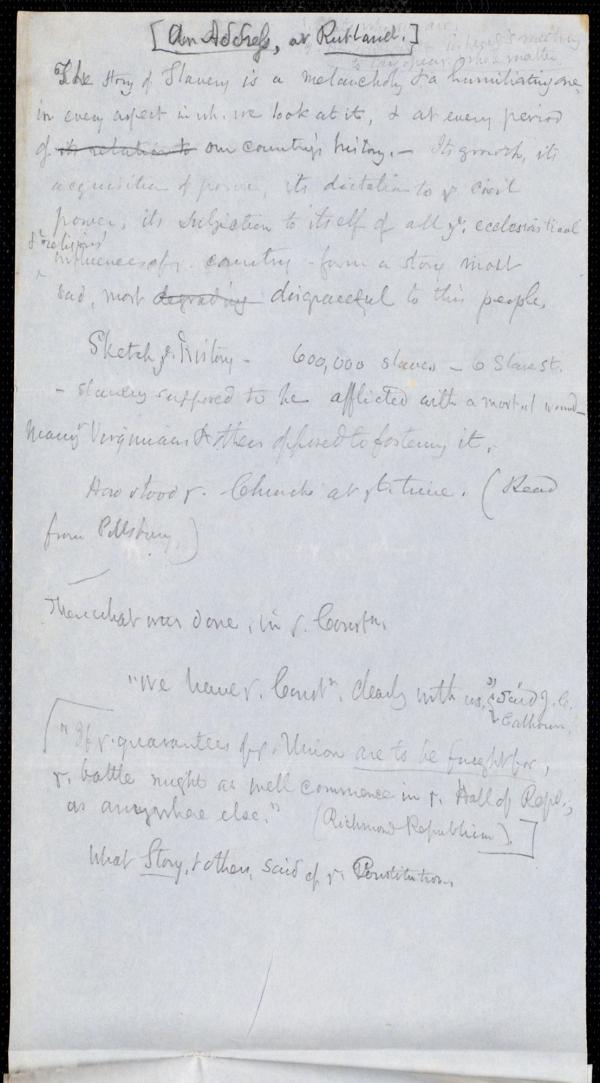 [An Address, at Rutland.]
The story of Slavery is a melancholy & a humiliating one,
in every aspect in wh. we look at it, & at every period
of its relation to our country's history. — Its growth, its
acquisition of power, its dictation to ye civil
power, its subjection to itself of all ye ecclesiastical
& religious
influences of ye country – form a story most
sad, most degrading disgraceful to this people.
Sketch ye History – 600,000 slaves – 6 Slave St.
– slavery supposed to be afflicted with a mortal wound –
Many Virginians & others opposed to fostering it.
How stood ye Church at yt time. (Read
from Pillsbury.)
Then what was done, in ye Constn.
"We have ye Constn. clearly with us," said J. C.
Calhoun.
["If ye guarantees of ye Union are to be fought for,
ye battle might as well commence in ye Hall of Reps.,
as anywhere else." (Richmond Republican).]
What Story, & others, said of ye Constitution.